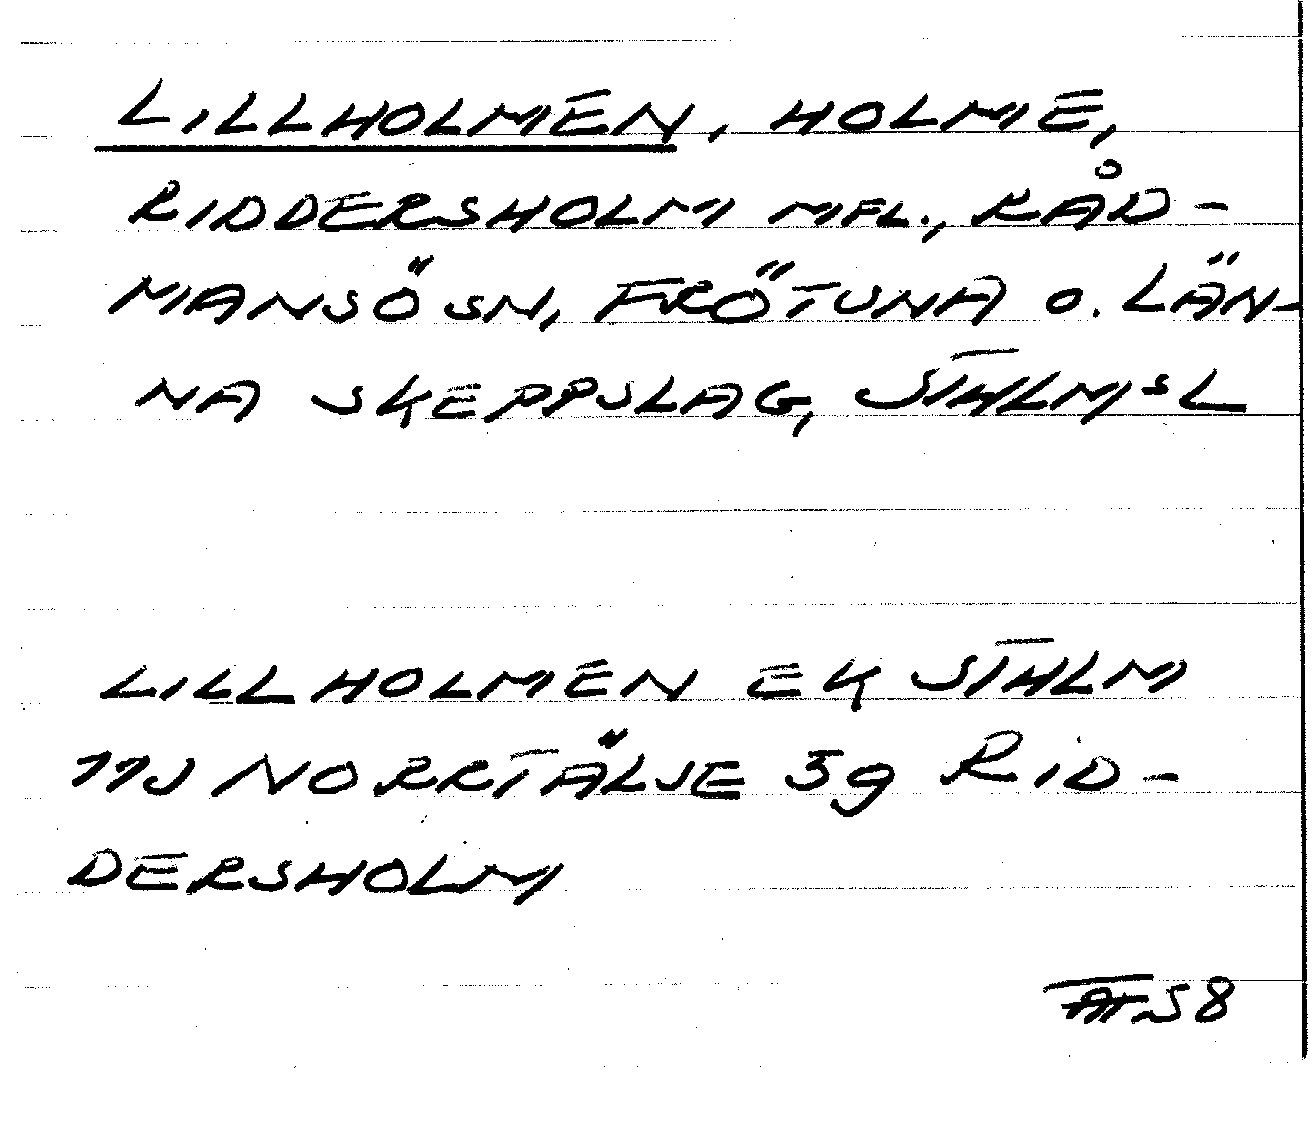 LILLHOLMEN, HOLME,
RIDDERSHOLM MFL., RÅD-
MANSÖ SN, FRÖTUNA O. LÄN-
NA SKEPPSLAG, STHLMSL
LILLHOLMEN EK STHLM
11J NORRTÄLJE 3g RID-
DERSHOLM